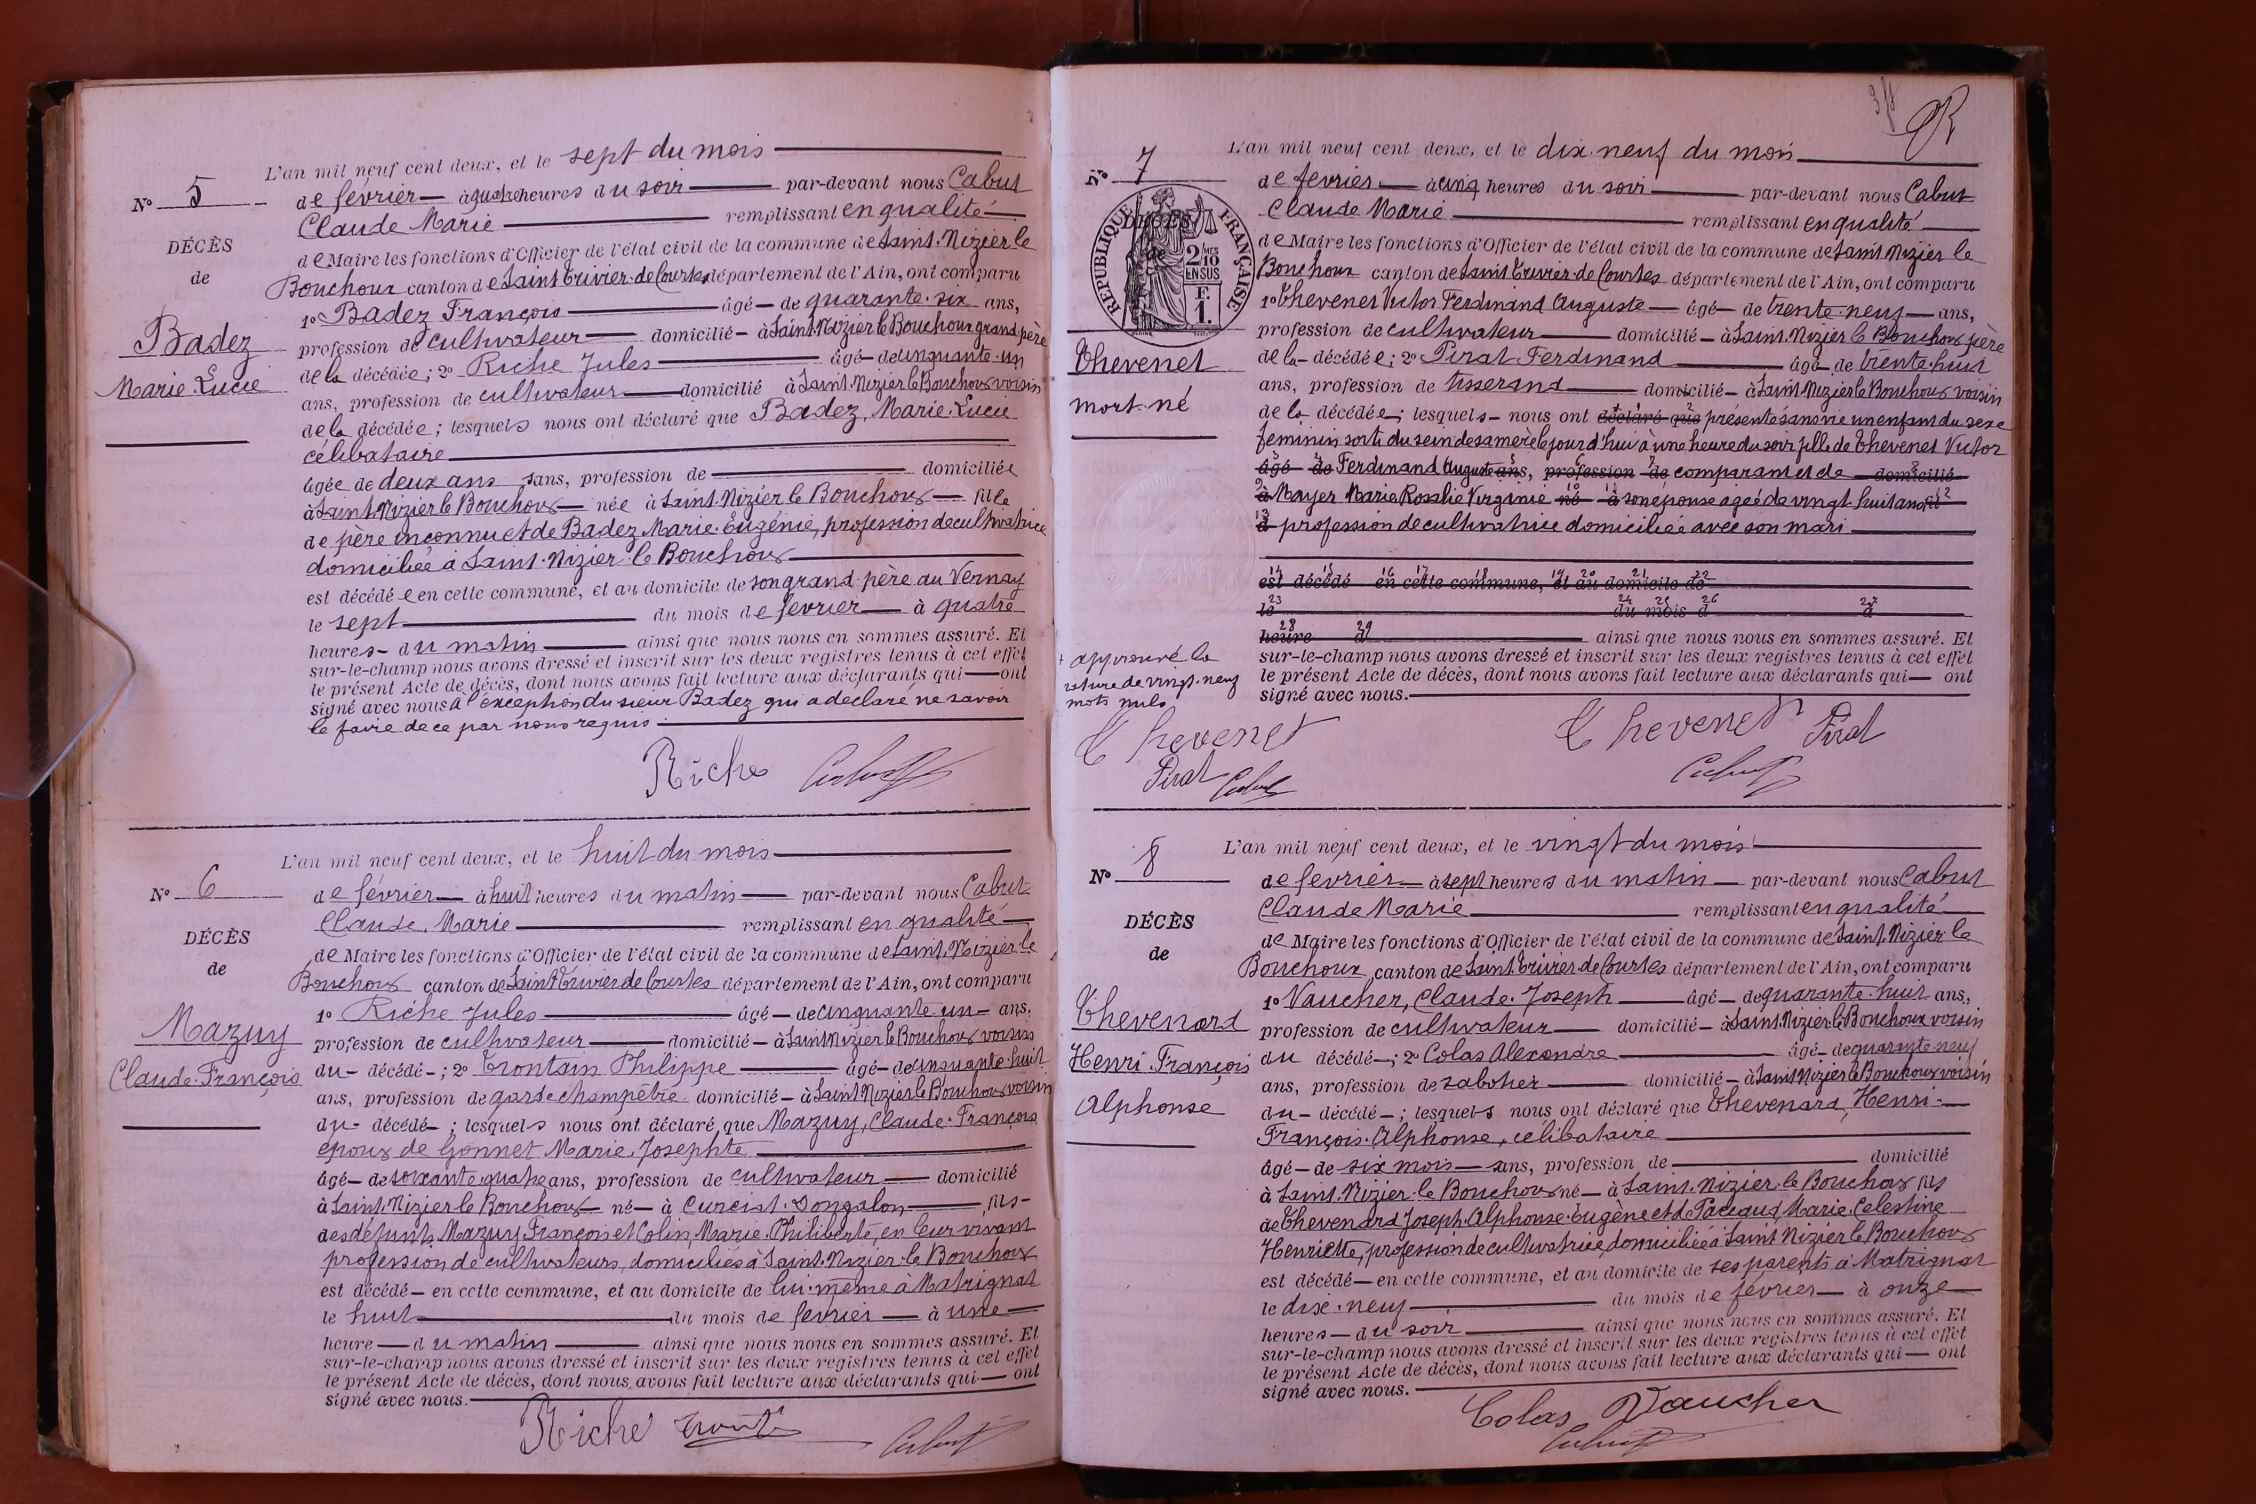 L'an mil neuf cent deux, et le sept du mois
N° 5
de février à quatre heures du soir par-devant nous Cabut
Claude Marie remplissant en qualité
DÉCÈS
de Maire les fonctions d'Officier de l'état civil de la commune de Saint-Nizier le
de
Bouchoux canton de Saint Trivier-de Courtes département de l'Ain, ont comparu
1° Badez François âgé de quarante-six ans,
Badez
profession de cultivateur domicilié à Saint-Nizier le Bouchoux grand père
de la décédée; 2° Riche Jules âgé de cinquante-un
Marie Lucie
ans, profession de cultivateur domicilié à Saint-Nizier le Bouchoux voisin
de la décédée; lesquels nous ont déclaré que Badez, Marie-Lucie
célibataire
âgée de deux ans sans, profession de domiciliée
à Saint-Nizier le Bouchoux née à Saint-Nizier le Bouchoux fille
de père inconnu et de Badez Marie-Eugénie, profession de cultivatrice
domiciliée à Saint-Nizier-le Bouchoux
est décédée en cette commune, et au domicile de son grand-père au Vernay
le sept du mois de février à quatre
heures du matin ainsi que nous nous en sommes assuré. Et
sur-le-champ nous avons dressé et inscrit sur les deux registres tenus à cet effet
le présent Acte de décès, dont nous avons fait lecture aux déclarants qui ont
signé avec nous à l'exception du sieur Badez qui a déclaré ne savoir
le faire de ce par nous requis
Riche Cabut
L'an mil neuf cent deux, et le huit du mois
N° 6
de février à huit heures du matin par-devant nous Cabut
Claude Marie remplissant en qualité
DÉCÈS
de Maire les fonctions d'Officier de l'état civil de la commune de Saint-Nizier le
de
Bouchoux canton de Saint Trivier de Courtes département de l'Ain, ont comparu
1° Riche Jules âgé de cinquante-un ans,
Mazuy
profession de cultivateur domicilié à Saint Nizier le Bouchoux voisin
du décédé; 2° Trontain Philippe âgé de cinquante-huit
Claude-François
ans, profession de garde champêtre domicilié à Saint-Nizier le Bouchoux voisin
du décédé; lesquels nous ont déclaré que Mazuy, Claude-François
époux de Gonnet Marie Josephte
âgé de soixante quatre ans, profession de cultivateur domicilié
à Saint-Nizier le Bouchoux né à Curciat-Dongalon fils
des défunts Mazuy François et Colin, Marie-Philiberte, en leur vivant
profession de cultivateurs, domiciliés à Saint-Nizier-le Bouchoux
est décédé en cette commune, et au domicile de lui-même à Matrignat
le huit du mois de février à une
heure du matin ainsi que nous nous en sommes assuré. Et
sur-le-champ nous avons dressé et inscrit sur les deux registres tenus à cet effet
le présent Acte de décès, dont nous avons fait lecture aux déclarants qui ont
signé avec nous.
Riche Cabut
L'an mil neuf cent deux, et le dix-neuf du mois
N° 7
de février à cinq heures du soir par-devant nous Cabut
Claude Marie remplissant en qualité
RÉPUBLIQUE FRANÇAISE
DÉCÈS
de
2/10 EN SUS
F. 1.
de Maire les fonctions d'Officier de l'état civil de la commune de Saint Nizier le
Bouchoux canton de Saint Trivier de Courtes département de l'Ain, ont comparu
1° Thevenet Victor Ferdinand Auguste âgé de trente-neuf ans,
profession de cultivateur domicilié à Saint-Nizier le Bouchoux père
Thevenet
de la décédée; 2° Pirat Ferdinand âgé de trente-huit
ans, profession de tisserand domicilié à Saint Nizier le Bouchoux voisin
mort-né
de la décédée; lesquels nous ont déclaré que présenté sans vie un enfant du sexe
féminin sorti du sein de sa mère le jour d'hui à une heure du soir fille de Thevenet Victor
âgé de Ferdinand Auguste ans, profession de comparant et de domicilié
à Mayer Marie Rosalie Virginie né à son épouse agée de vingt-huit ans fil
d profession de cultivatrice domiciliée avec son mari
est décédé en cette commune, et au domicile de
le du mois d à
heure d ainsi que nous nous en sommes assuré. Et
sur-le-champ nous avons dressé et inscrit sur les deux registres tenus à cet effet
le présent Acte de décès, dont nous avons fait lecture aux déclarants qui ont
signé avec nous.
approuvé la
rature de vingt-neuf
mots nuls
Thevenet Pirat
Cabut
Thevenet
Pirat Cabut
L'an mil neuf cent deux, et le vingt du mois
N° 8
de février à sept heures du matin par-devant nous Cabut
Claude Marie remplissant en qualité
DÉCÈS
de Maire les fonctions d'Officier de l'état civil de la commune de Saint-Nizier le
de
Bouchoux, canton de Saint Trivier de Courtes département de l'Ain, ont comparu
1° Vaucher, Claude-Joseph âgé de quarante-huit ans,
Thevenard
profession de cultivateur domicilié à Saint-Nizier-le Bouchoux voisin
Henri-François
du décédé; 2° Colas Alexandre âgé de quarante-neuf
ans, profession de sabotier domicilié à Saint Nizier le Bouchoux voisin
Alphonse
du décédé; lesquels nous ont déclaré que Thevenard, Henri-
François-Alphonse, célibataire
âgé de six mois sans, profession de domicilié
à Saint-Nizier-le Bouchoux né à Saint-Nizier-le Bouchoux fils
de Thevenard Joseph-Alphonse-Eugène et de Pacqud Marie-Celestine
Henriette, profession de cultivatrice, domiciliée à Saint Nizier le Bouchoux
est décédé en cette commune, et au domicile de ses parents à Matrignat
le dix-neuf du mois de février à onze
heures du soir ainsi que nous nous en sommes assuré. Et
sur-le-champ nous avons dressé et inscrit sur les deux registres tenus à cet effet
le présent Acte de décès, dont nous avons fait lecture aux déclarants qui ont
signé avec nous.
Colas Vaucher
Cabut